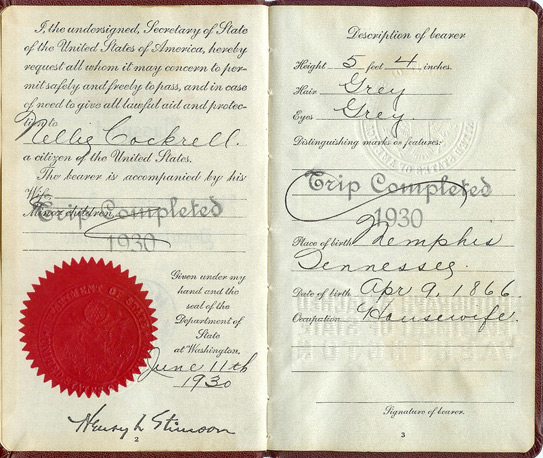 I, the undersigned, Secretary of State
of the United States of America, hereby
request all whom it may concern to per-
mit safely and freely to pass, and in case
of need to give all lawful aid and protec-
tion to
Nellie Cockrell.
a citizen of the United States.
The bearer is accompanied by his
Wife,
Minor children,
Trip Completed
1930
Given under my
hand and the
seal of the
Department of
State
at Washington,
June 11th
1930
Henry L Stimson
2
Description of bearer
Height 5 feet 4 inches.
Hair Grey
Eyes Grey.
Distinguishing marks or features:
Trip Completed
1930
Place of birth Memphis
Tennessee.
Date of birth Apr 9, 1866
Occupation Housewife.
Signature of bearer.
3